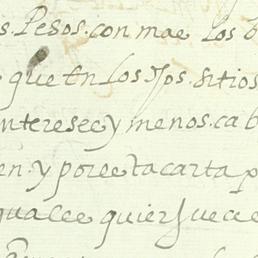 s. Pesos. con mae los b
que En los dhos. sitios
nteresee y menos. cab
en. y poreeta carta p
qualee quier Juece